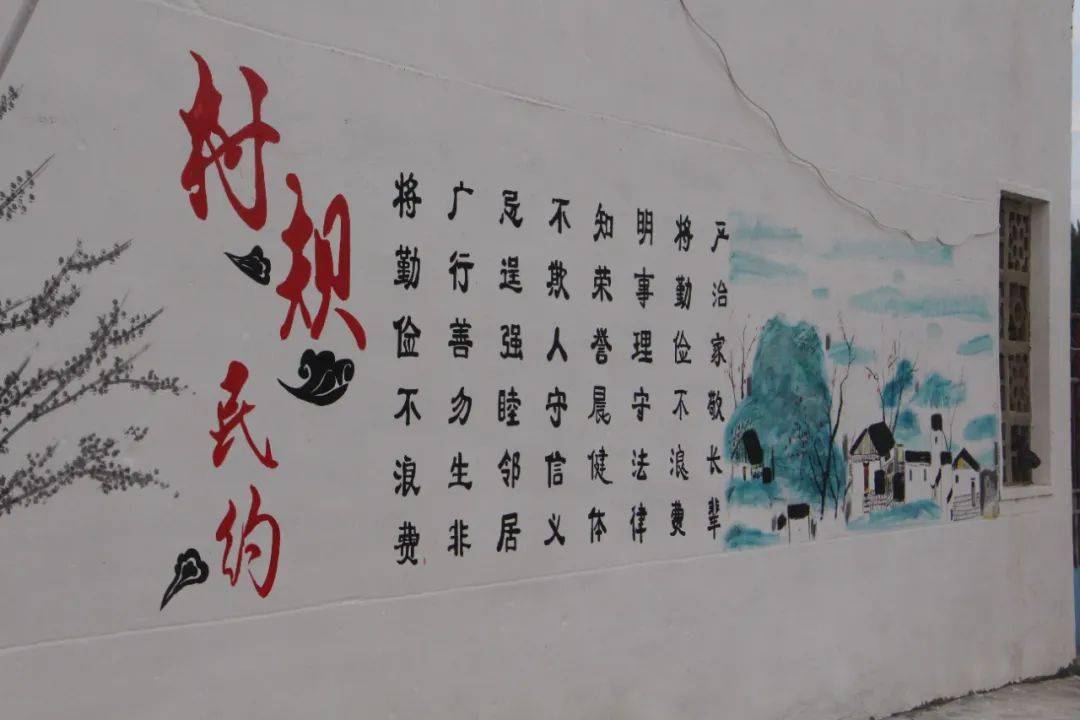 村规
民约
将勤俭不浪费
广行善勿生非
忌逞强睦邻居
不欺人守信义
知荣誉晨健体
明事理守法律
将勤俭不浪费
严治家敬长辈